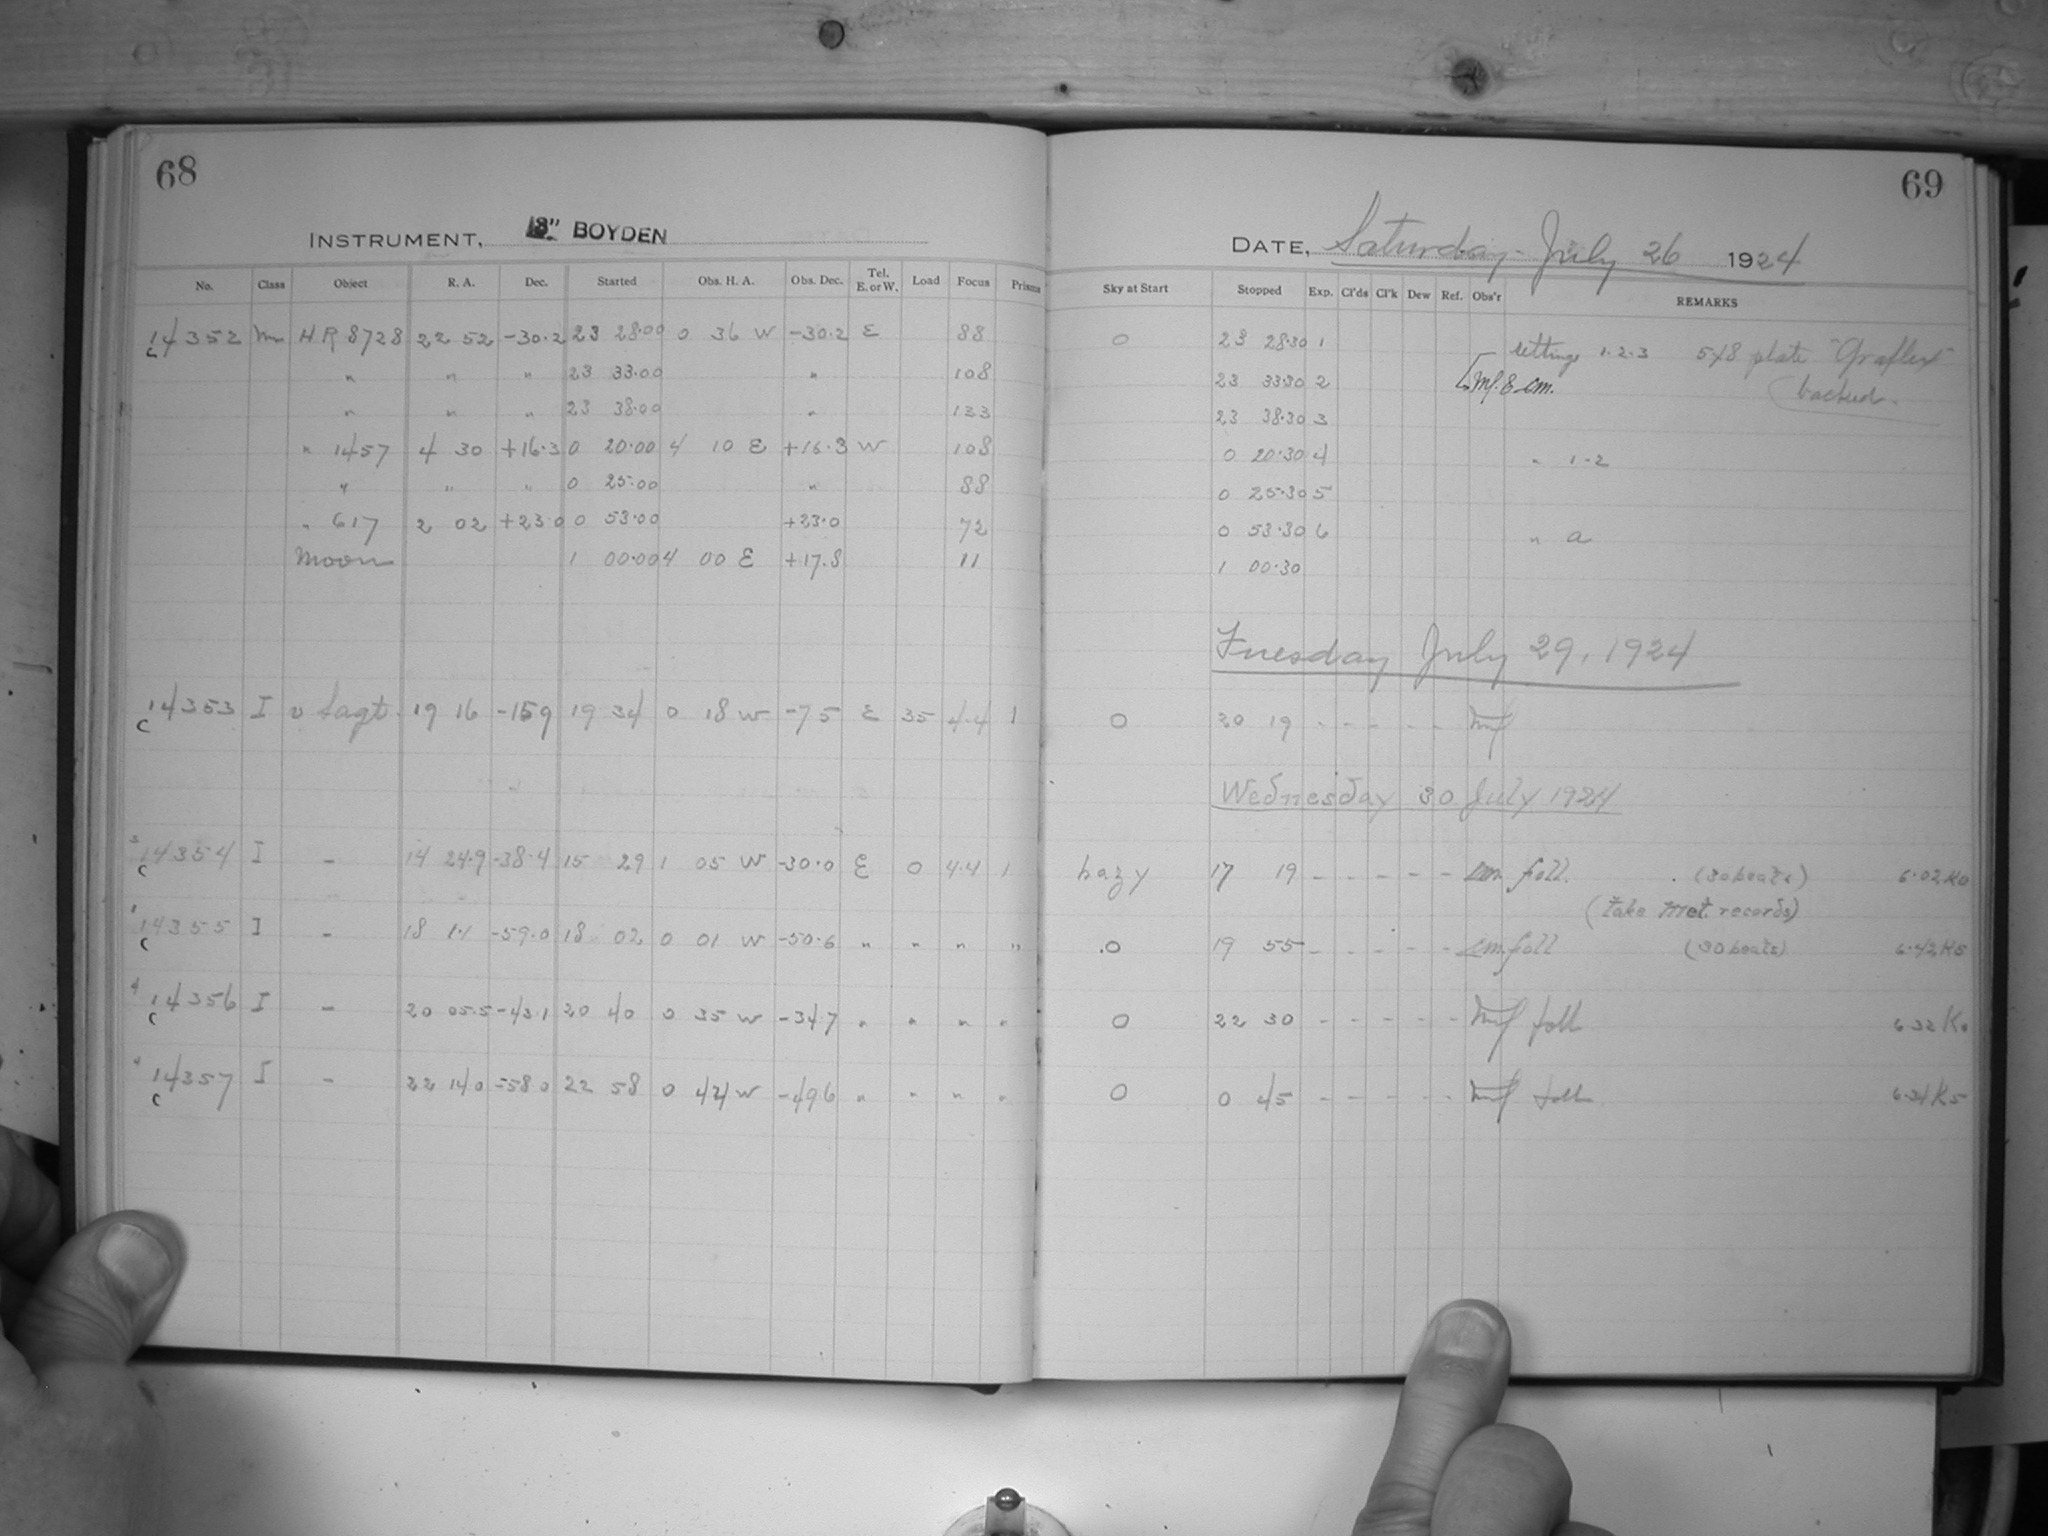 68
INSTRUMENT, 13" BOYDEN
No. Class Object R. A. Dec. Started Obs. H. A. Obs. Dec. Tel. E. or W. Load Focus Prisms
14352 HR 8728 22 52 -30.2 23 28.00 0 36 W -30.2 E 88
" " " 23 33.00 " 108
" " " 23 38.00 " 133
" 1457 4 30 +16.3 0 20.00 4 10 E +16.3 W 108
" " " 0 25.00 " 88
" 617 2 02 +23.0 0 53.00 +23.0 72
Moon 1 00.00 4 00 E +17.8 11
14353 I υ Sagt. 19 16 -159 19 34 0 18 W -75 E 35 4.4 1
14354 I - 14 24.9 -38.4 15 29 1 05 W -30.0 E 0 4.4 1
14355 I - 18 1.1 -59.0 18 02 0 01 W -50.6 " " " "
14356 I - 20 05.5 -43.1 20 40 0 35 W -347 " " " "
14357 I - 22 140 -580 22 58 0 44 W -496 " " " "
69
DATE, Saturday - July 26 1924
Sky at Start Stopped Exp. Cl'ds Cl'k Dew Ref. Obs'r REMARKS
0 23 28.30 1 settings 1.2.3 5x8 plate "Graflex"
23 33.30 2 backed.
23 38.30 3
0 20.30 4 " 1-2
0 25.30 5
0 53.30 6 " a
1 00.30
Tuesday July 29, 1924
0 20 19 - - - - -
Wednesday 30 July 1924
hazy 17 19 - - - - - foll. (30 beats) 6.02 K0
(Take Met. records)
0 19 55 - - - - - foll (30 beats) 6.42 K5
0 22 30 - - - - - foll 6.32 K0
0 0 45 - - - - - foll 6.34 K5